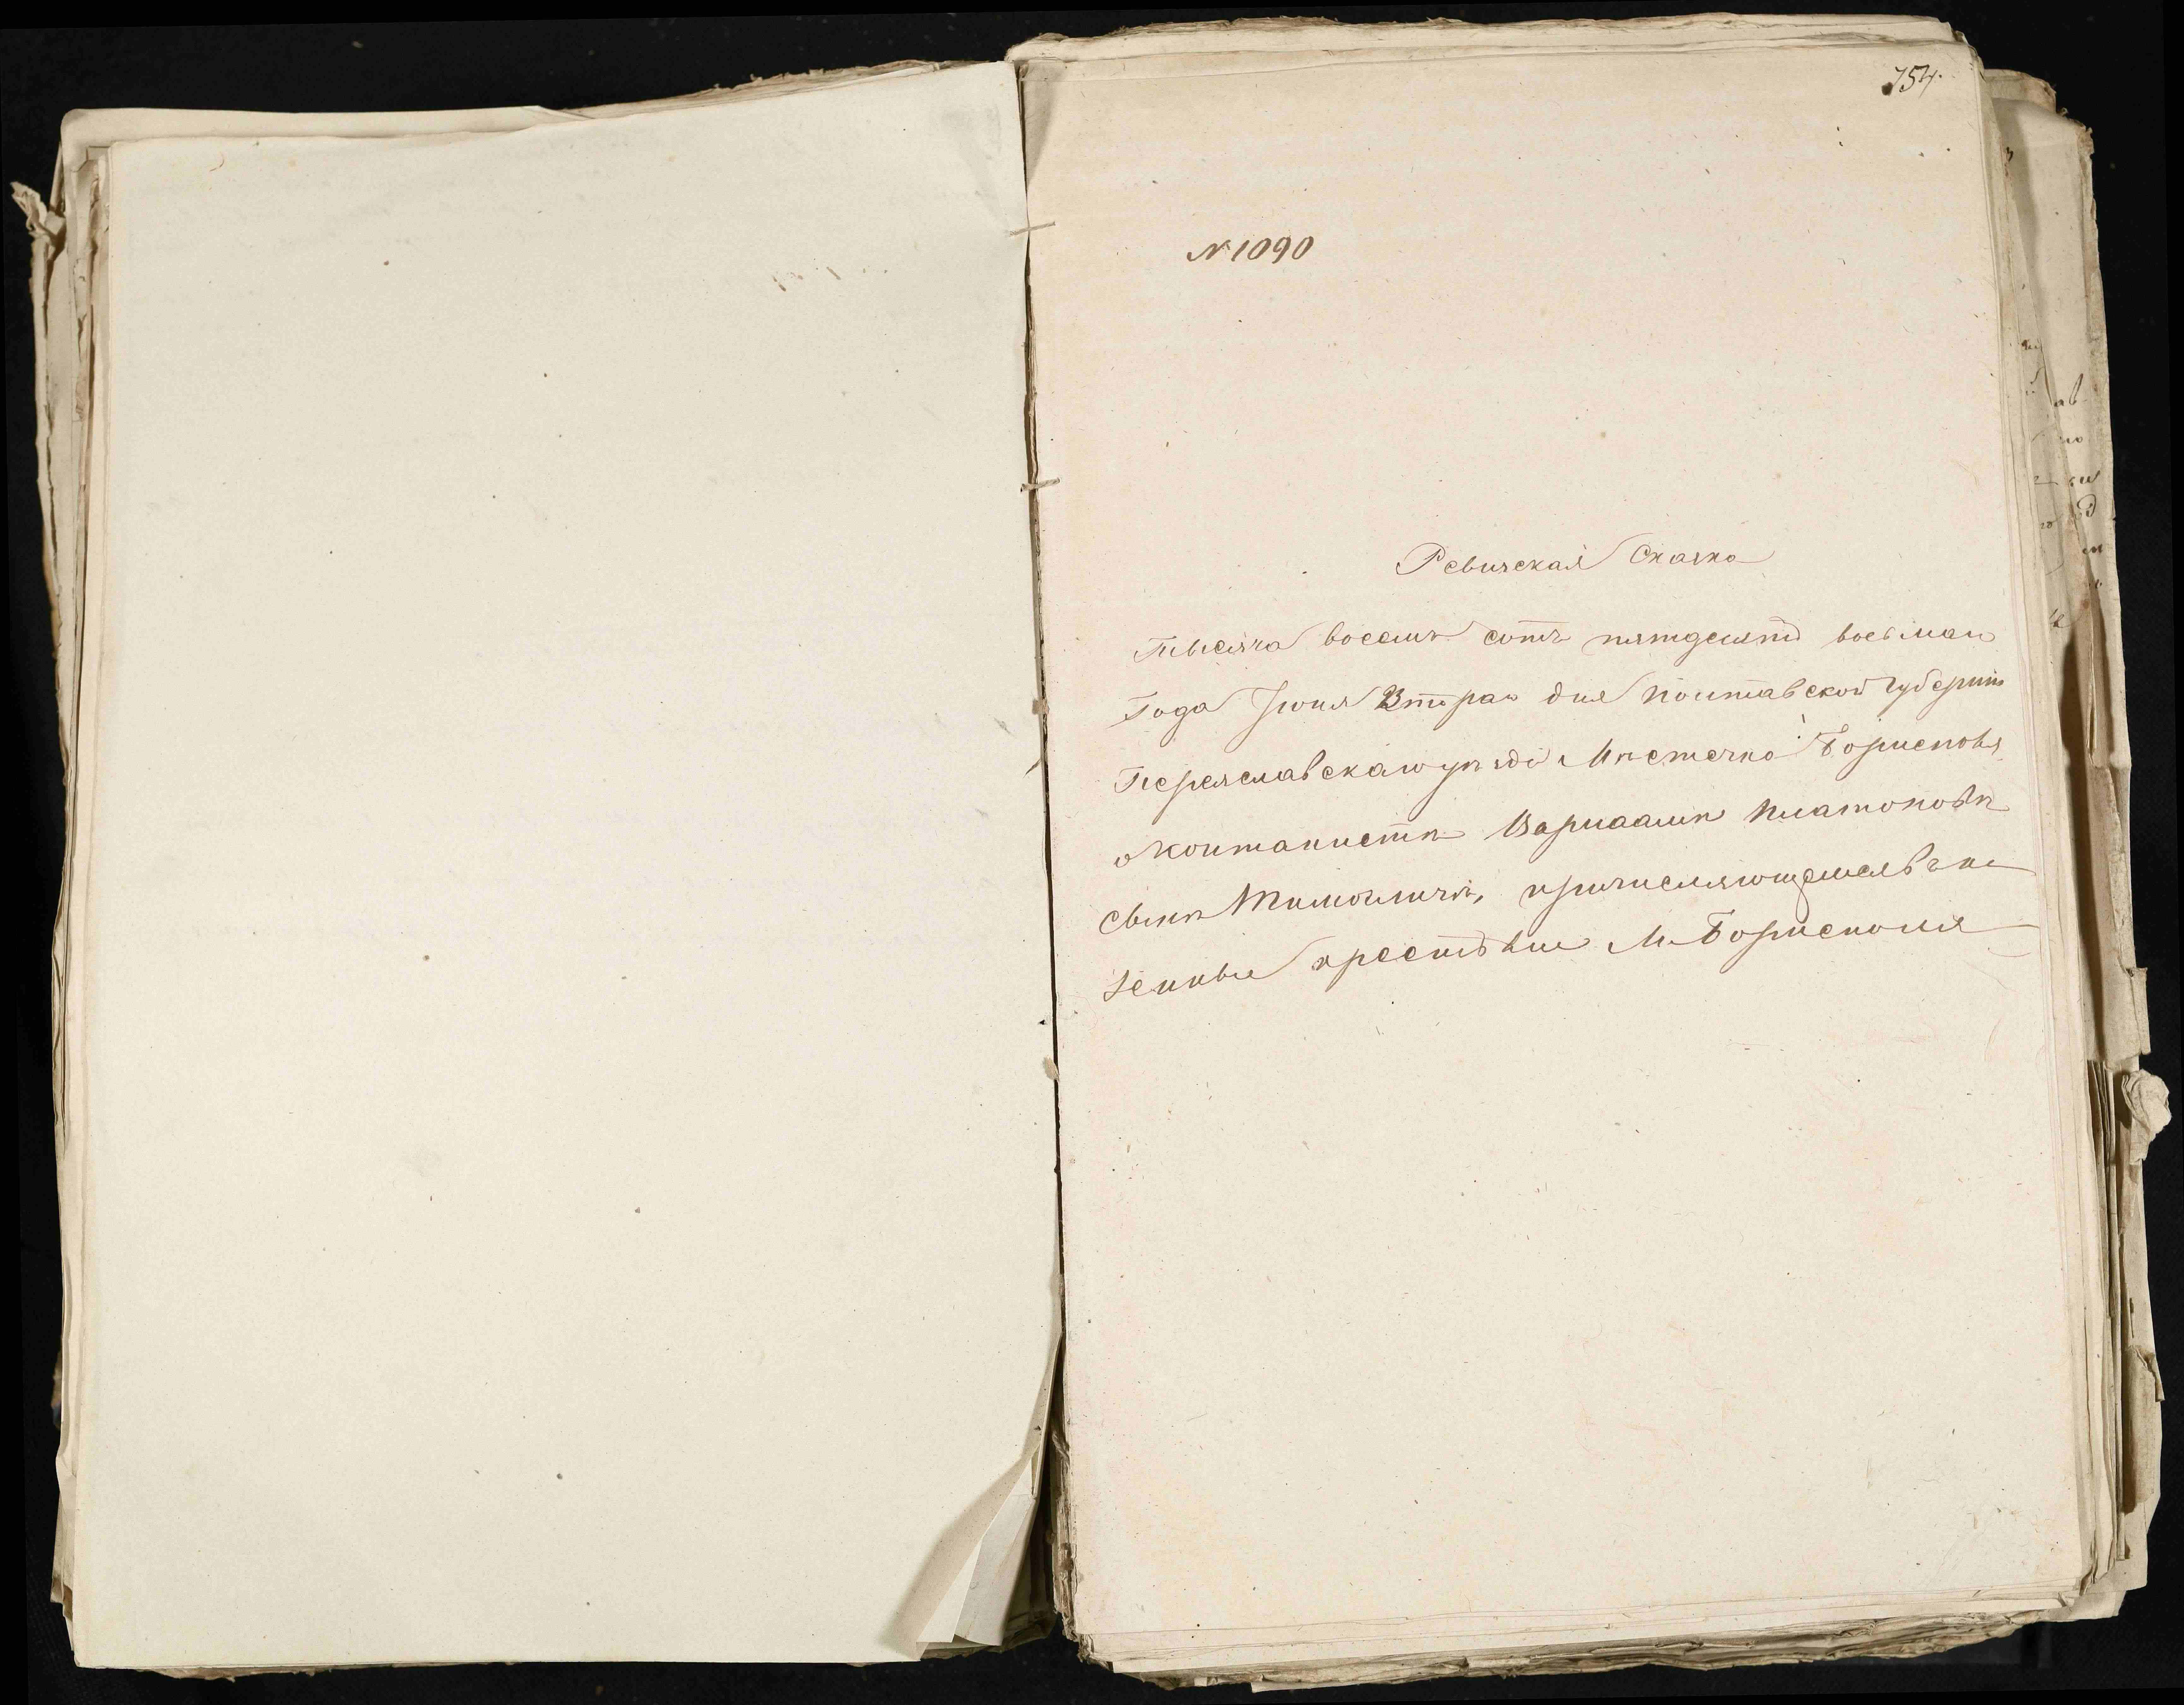 754.
№ 1090
Ревизская Сказка
Тысяча восемь сотъ пятдесятъ восьмаго
Года Іюня Втораго дня Полтавской Губерніи
Переяславскаго уѣзда Мѣстечка Борисполя
о Контонистѣ Варлаамѣ Платоновѣ
сынѣ причисляющемся въ ка
зенные крестьяне М. Борисполя